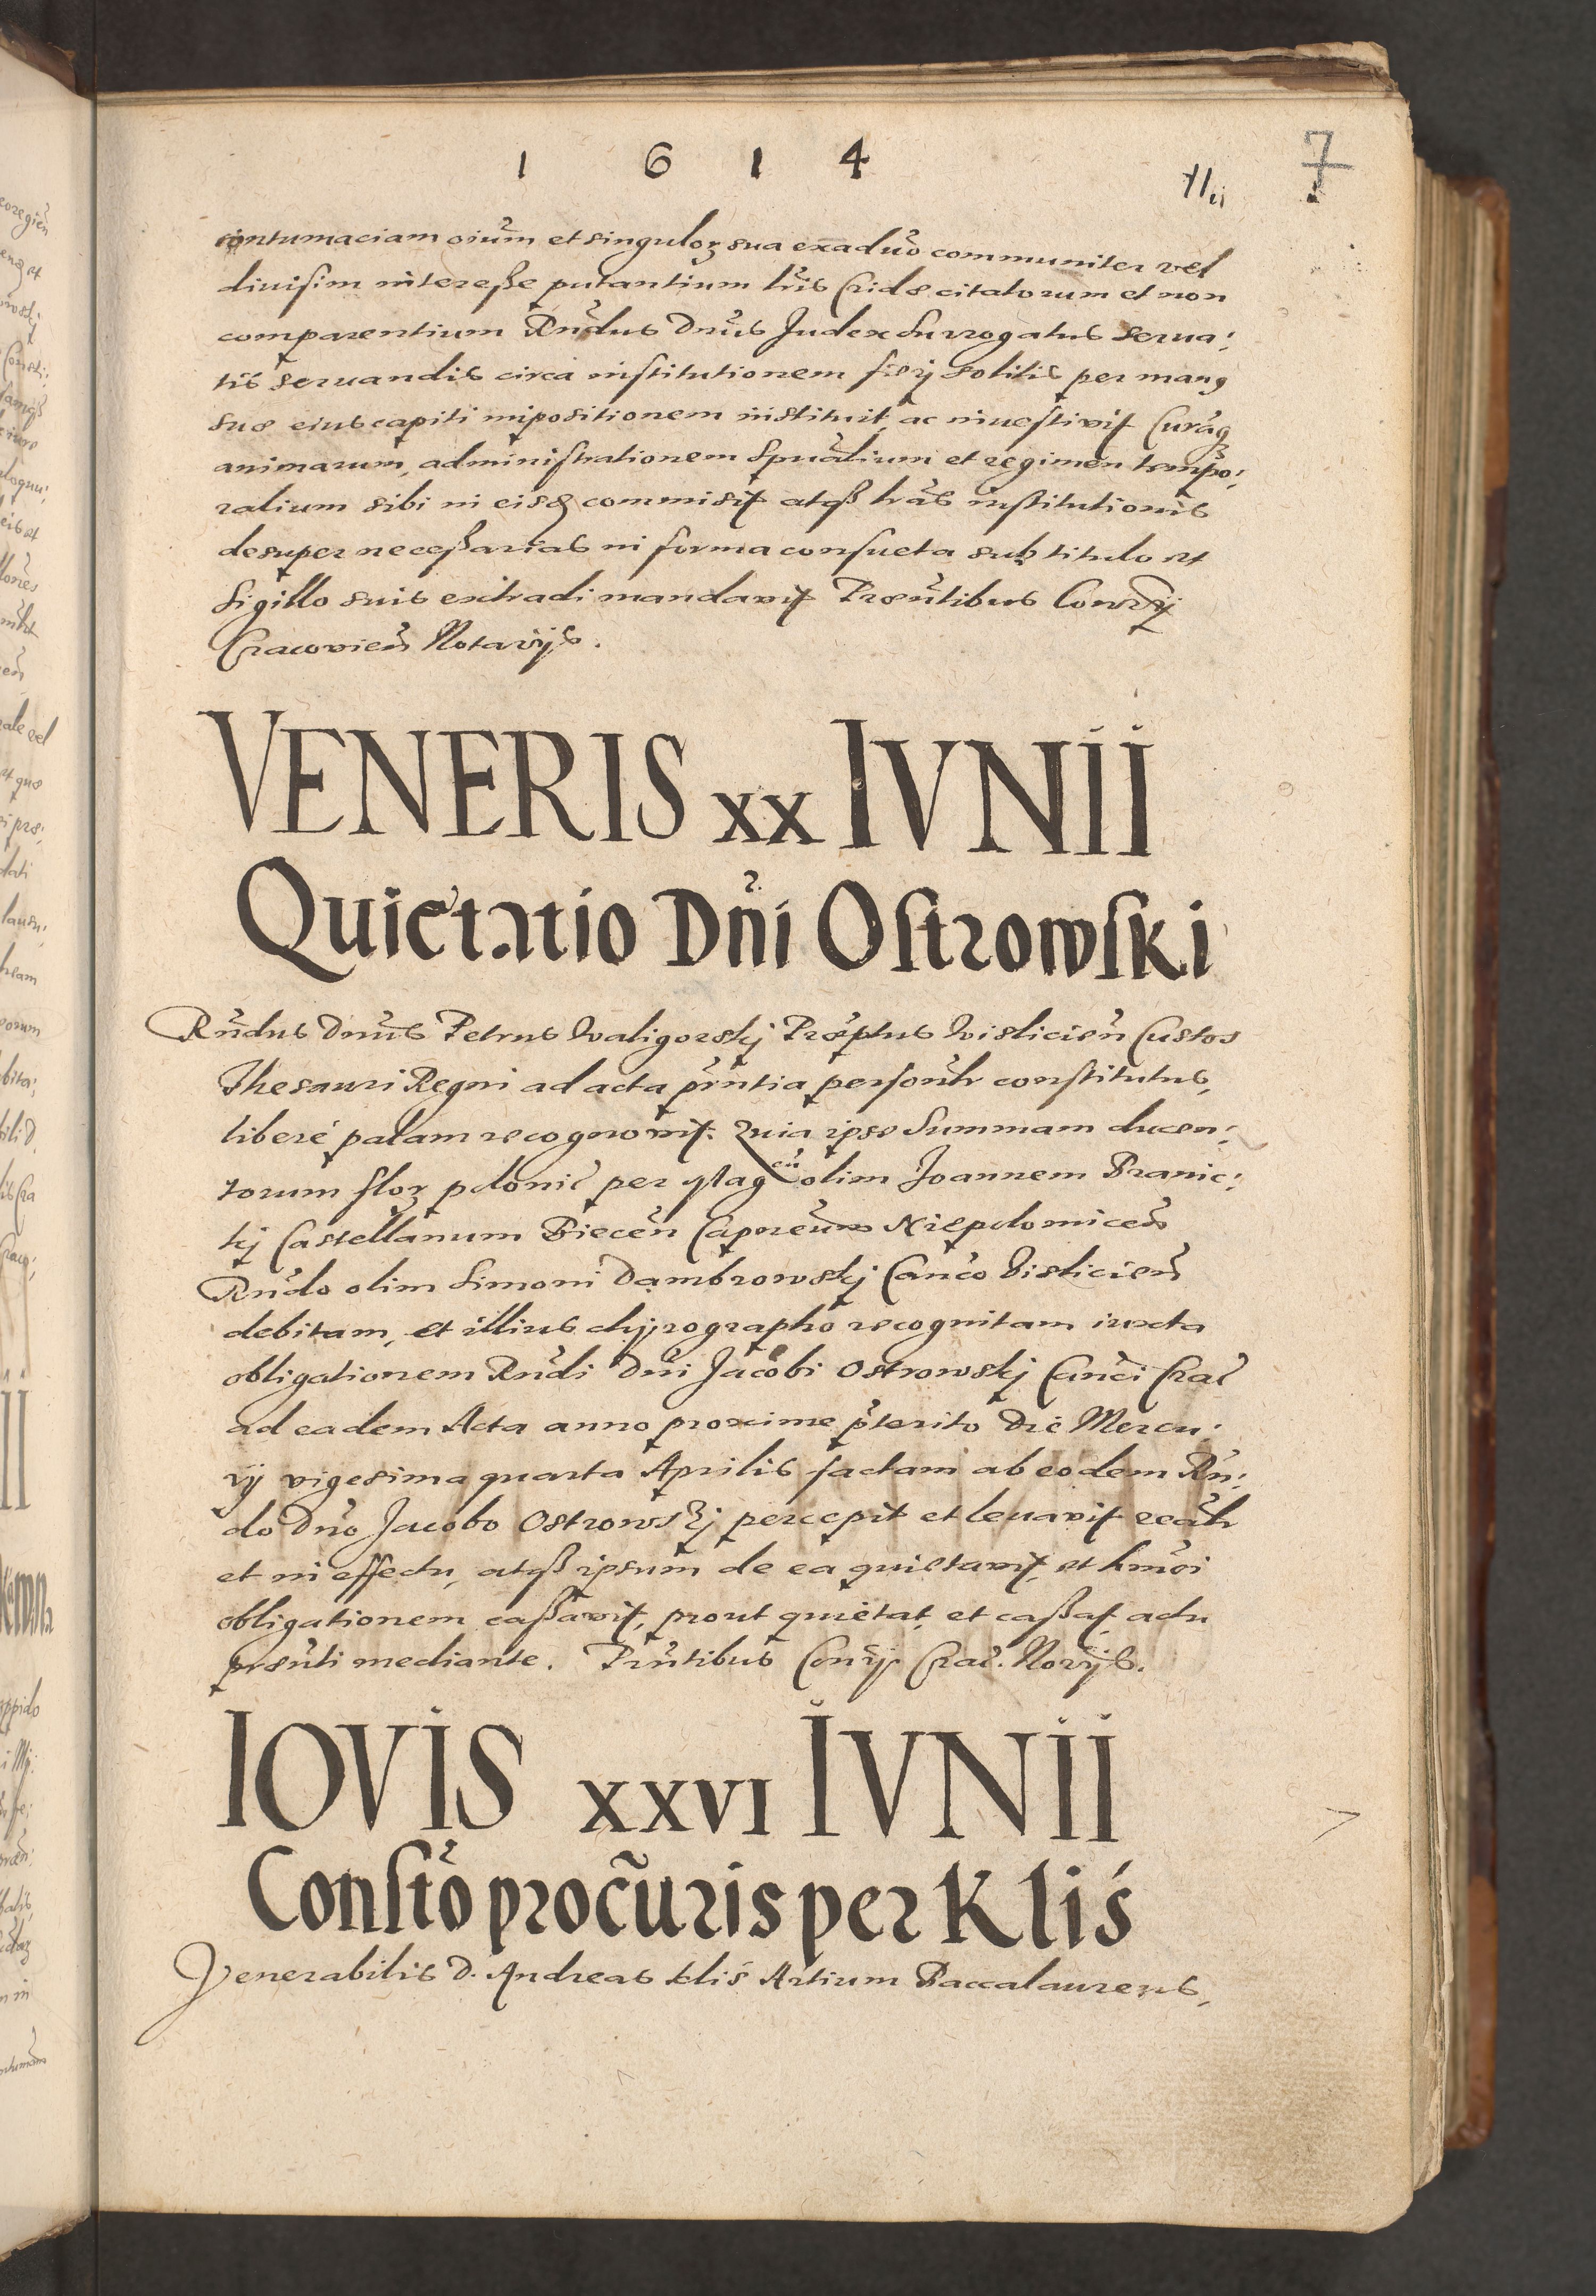 1 6 1 4
7
contumaciam oium et singuloꝝ sua exaduo communiter vel
diuisim interesse putantium lris Cridæ citatorum et non
comparentium Rndus Dnus Judex Surrogatus serua:
tis seruandis circa institutionem fiery solitis per manꝰ
suæ eius capiti impositionem instituit, ac inuestiuit Curāq
animarum, administrationem Spualium et regimen tempo:
ralium sibi in eisd commisit atqß lras institutionis
desuper necessarias in forma consueta sub titulo et
Sigillo suis extradi mandauit Præntibus Conrÿ
Cracouien Notarijs.
VENERIS XX IVNII
Quietatio Dñi Ostrowski
Rndus Dnus Petrus Waligorskj Præptus Wislicien Custos
Thesauri Regni ad acta pñntia personlr constitutus,
liberé palam recognouit: Quia ipse Summam ducen:
torum floꝝ polonic per Mag cū olim Joannem Branic:
kj Castellanum Biecen Capneum Niepolomicen
Rndo olim Simoni Dąmbrowskj Canco Vislicien
debitam, et illius chyrographo recognitam iuxta
obligationem Rndi Dni Jacobi Ostrowskj Canci Crac
ad eadem Acta anno proxime pterito Die Mercu:
rÿ vigesima quarta Aprilis factam ab eodem Rn:
do Dno Jacobo Ostrowskj percepit et leuauit realr
et in effectu, atqß ipsum de ea quietauit, et hmoi
obligationem cassauit, prout quietat, et cassat, actu
præsnti mediante. Prntibus Conrÿ Crac. Norÿs.
IOVIS XXVI IVNII
Constõ procũris per Kliś
Venerabilis D. Andreas Kliś Artium Baccalaureus,